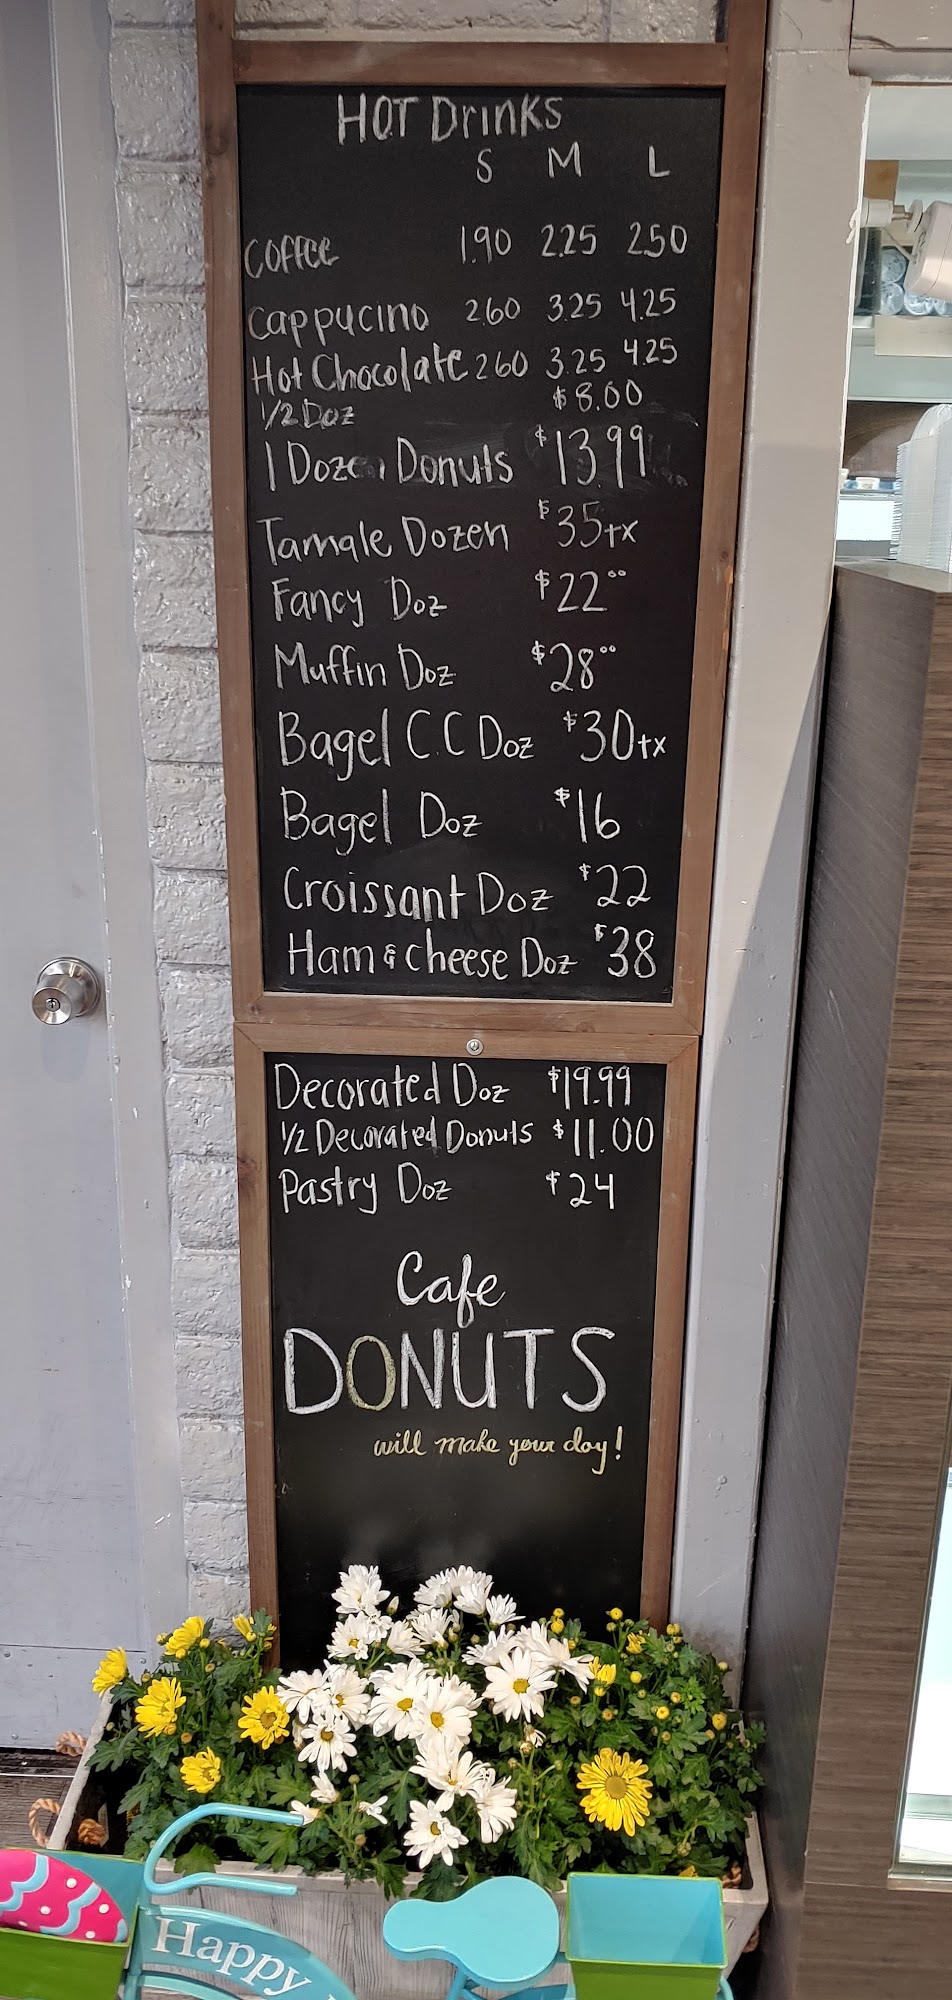 HOT Drinks
S M L
Coffee 1.90 2.25 2.50
Cappucino 2.60 3.25 4.25
Hot Chocolate 2.60 3.25 4.25
1/2 Doz $8.00
1 Dozen Donuts $13.99
Tamale Dozen $35+x
Fancy Doz $22⁰⁰
Muffin Doz $28⁰⁰
Bagel C.C Doz $30+x
Bagel Doz $16
Croissant Doz $22
Ham & Cheese Doz $38
Decorated Doz $19.99
1/2 Decorated Donuts $11.00
Pastry Doz $24
Cafe
DONUTS
will make your day!
Happy